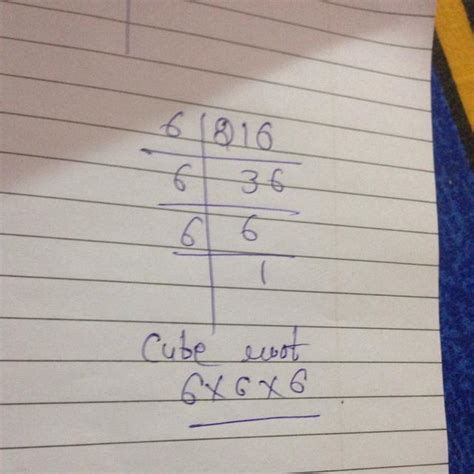 6 216
6 36
6 6
1
Cube root
6×6×6